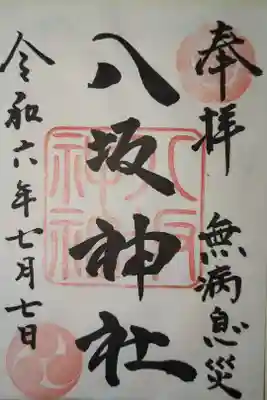 奉拝
無病息災
八坂神社
令和六年七月七日
八坂神社